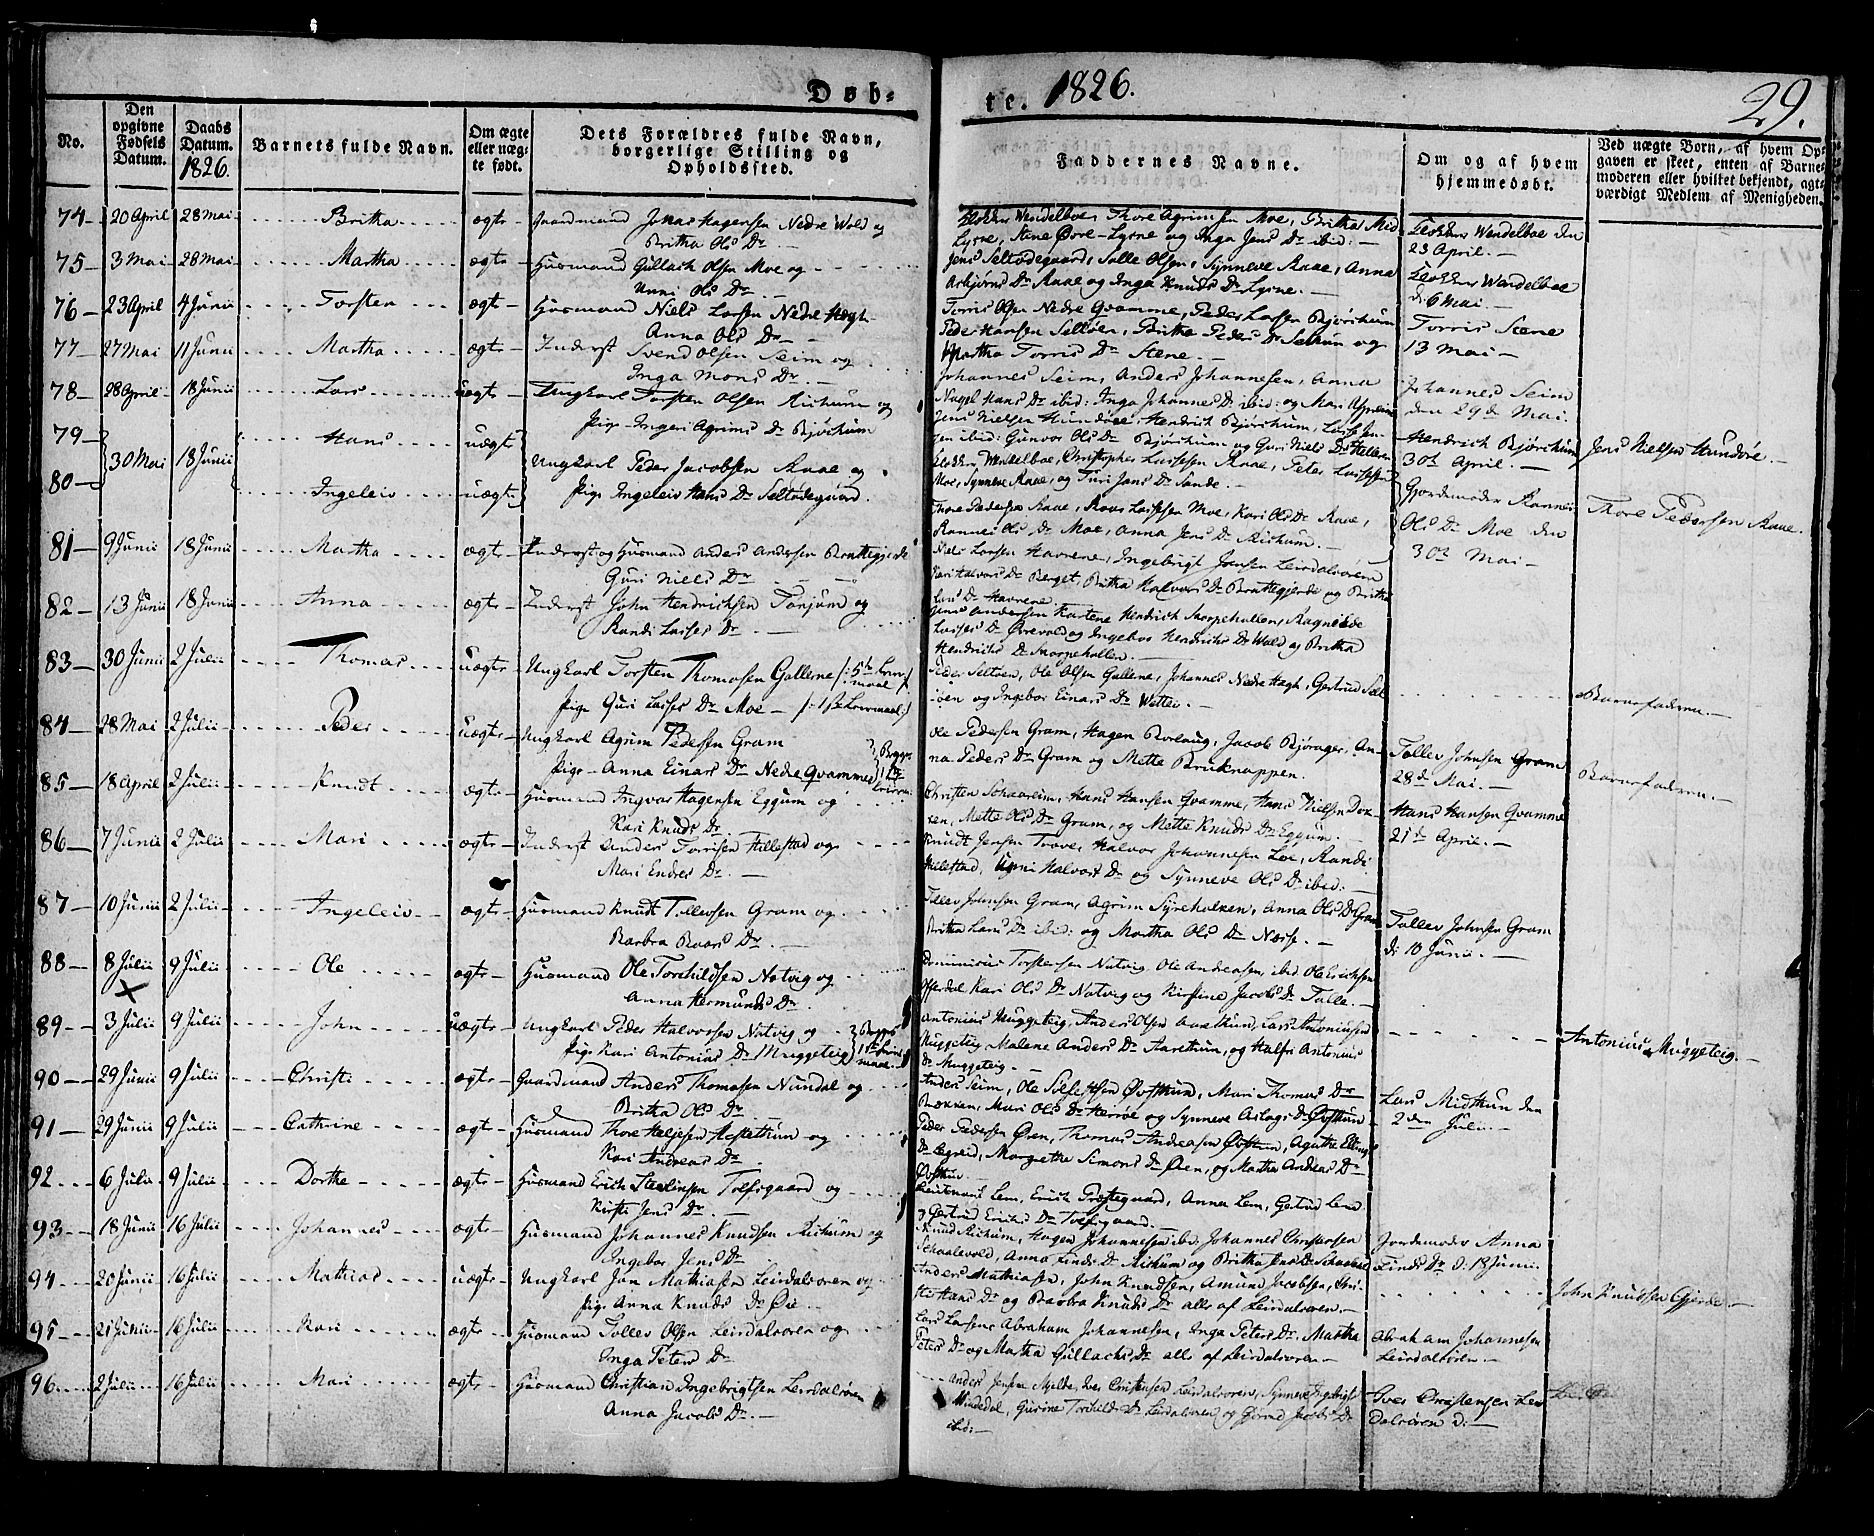 Døb-
te. 1826.
29.
No.
Den opgivne Fødsels Datum.
Daabs Datum. 1826.
Barnets fulde Navn.
Om ægte eller uægte født.
Dets Forældres fulde Navn, borgerlige Stilling og Opholdssted.
Faddernes Navne.
Om og af hvem hjemmedøbt.
Ved uægte Børn, af hvem Opgaven er skeet, enten af Barnemoderen eller hvilket bekjendt, agtværdigt Medlem af Menigheden.
74 20 April 28 Mai Britha ægte Gaardmand Jonas Hagensen Nedre Wold og
Britha Ols Dr.
Klokker Wendelboe, Thore Agrimsen Moe, Britha Med
Lysne, Stene Øvre-Lysne og Inga Jens Dr ibid:
Klokker Wendelboe den
23 April.
75 3 Mai 28 Mai Martha ægte Husmand Gullach Olsen Moe og
Unni Ols Dr.
Jens Seltødegaard, Salle Olsen, Synneve Aaae, Anna
Asbjørns Dr Aaae og Inga Knuds Dr Lysne.
Klokker Wendelboe
d: 6 Mai.
76 23 April 4 Junii Torsten ægte Husmand Niels Larsen Nedre Hægh
Anna Ols Dr
Torris Olsen Nedre Qvamme, Peder Larsen Bjørchum
Peder Hansen Seltøen, Britha Peders Dr Seltun og
Martha Torris Dr Stene.
Torris Stene
13 Mai
77 27 Mai 11 Junii Martha ægte Inderst Svend Olsen Seim og
Inga Mons Dr.
Johannes Seim, Anders Johannesen, Anna
Hans Dr ibid: Inga Johannes Dr ibid: og Mari
Johannes Seim
den 29de Mai.
78 28 April 18 Junii Lars uægte Ungkarl Torsten Olsen Richum og
Pige Ingeri Agrims Dr Bjørchum
Jens Nielsen Hundøie, Hendrich Bjørchum, Lasse Jen-
sen ibid: Gunvor Ols Dr Bjørchum og Guri Niels Dr Hellem
Hendrich Bjørchum
30te April.
Jens Nielsen Hundøie.
79 Hans uægte
30 Mai 18 Junii
Ungkarl Peder Jacobsen Aaae og
Klokker Wendelboe, Christopher Lassesen Aaae, Peter Lassesen
Moe, Synneve Aaae, og Turi Jens Dr Sande.
Gjordemoder Rannei
80 Ingeleiv uægte Pige Ingeleiv Hans Dr Seltødegaard.
Thore Pedersen Aaae, Roar Lassesen Moe, Kari Ols Dr Aaae,
Rannei Ols Dr Moe, Anna Jens Dr Richum.
Ols Dr Moe den
30te Mai
Thore Pedersen Aaae.
81 9 Junii 18 Junii Martha ægte Inderst og Husmand Anders Andersen Brattegjerde
Guri Niels Dr
Niels Larsen Havrene, Ingebrigt Joensen Leirdalsøren
Kari Halvors Dr Berget, Britha Halvors Dr Brattegjerde og Britha
Lars Dr Havrene
82 13 Junii 18 Junii Anna ægte Inderst John Hendrichsen Tønjum og
Randi Lasses Dr.
Jens Andersen Kartene Hendrich Skorpehollen, Ragnilde
Lasses Dr Ørevold og Ingebor Hendrichs Dr Wold og Britha
Hendrichs Dr Skorpehollen.
83 30 Junii 2 Julii Thomas uægte Ungkarl Torsten Thomasen Gallerne /: 5te Leiermaal :/
Pige Guri Lasses Dr Moe /: 1ste Leiermaal :/
Peder Seltøen, Ole Olsen Gallene, Johannes Nedre Hægh, Gertrud Selt-
øen og Ingebor Einars Dr Wettei.
Barnefaderen.
84 28 Mai 2 Julii Peder uægte Ungkarl Agrim Pedersen Gram
Pige Anna Einars Dr Nedre Qvamme
Ole Pedersen Gram, Hagen Borlaug, Jacob Bjørager, An-
na Peders Dr Gram og Mette Bruknappen.
Tollev Johnsen Gram
28de Mai.
Barnefaderen.
85 18 April 2 Julii Knudt ægte Husmand Ingvar Hagensen Eggum og
Kari Knuds Dr
Christen Schaareim, Hans Hansen Qvamme, Hans Nielsen Dox-
en, Mette Ols Dr Gram, og Mette Knuds Dr Eggum.
Hans Hansen Qvamme
21de April.
86 7 Junii 2 Julii Mari ægte Inderst Anders Torrisen Hillestad og
Mari Endres Dr.
Knudt Jensen Trave, Halvor Johannesen Loe, Randi
Hillestad, Unni Halvors Dr og Synneve Ols Dr ibid:
87 10 Junii 2 Julii Ingeleiv ægte Husmand Knudt Tollevsen Gram og
Barbra Roars Dr.
Tollev Johnsen Gram, Agrim Syreholken, Anna Ols Dr Gram
Britha Lars Dr ibid: og Martha Ols Dr Næsse.
Tollev Johnsen Gram
d: 10 Junii.
88 8 Julii 9 Julii Ole ægte Husmand Ole Torchildsen Natvig og
Anna Hermunds Dr
Dominicus Torstensen Natvig, Ole Andreasen, ibid Ole Erichsen
Offerdal Kari Ols Dr Natvig og Kirstine Jacobs Dr Talle.
89 3 Julii 9 Julii John uægte Ungkarl Peder Halvorsen Natvig og
Pige Kari Antonius Dr Muggeteig
Antonius Muggeteig, Anders Olsen Aarethun, Lars Antoniusen
Muggeteig Malene Anders Dr Aarethun, og Halfri Antonius
Dr Muggeteig.
Antonius Muggeteig.
90 29 Junii 9 Julii Christi ægte Gaardmand Anders Thomasen Nundal og
Britha Ols Dr
Anders Seim, Ole Sølfestsen Øvsthun, Mari Thomas Dr
Bækken, Mari Ols Dr Herrøe og Synneve Aslags Dr Øvsthun
Lars Midthun den
2den Julii.
91 29 Junii 9 Julii Cathrine ægte Husmand Thore Heljesen Hestethun og
Kari Andreas Dr
Peder Pedersen Øren, Thomas Andreasen Øvsthun, Agathe Ellings
Dr Legreid, Margrethe Simons Dr Øren, og Martha Andreas Dr
Øvsthun
92 6 Julii 9 Julii Dorthe ægte Husmand Erich Steelinsen Tolfsgaard og
Kirsti Jens Dr.
Lieutenant Lem, Erich Præstegaard, Anna Lem, Gertrud Lem
og Gertrud Erichs Dr Tolfsgaard.
93 18 Junii 16 Julii Johannes ægte Husmand Johannes Knudsen Richum og
Ingebor Jens Dr
Knud Richum, Hagen Johannesen ibid, Johannes Christensen
Schaalevold, Anna Finds Dr Richum og Britha Jens Dr
Jordemoder Anna
Finds Dr d: 18 Junii.
94 20 Junii 16 Julii Mathias uægte Ungkarl Jan Mathiasen Leirdalsøren og
Pige Anna Knuds Dr Øie
Anders Mathiasen, John Knudsen, Amund Jacobsen, Chri-
sti Hans Dr og Barbra Knuds Dr alle af Leirdalsøren.
John Knudsen Gjerde.
95 21 Junii 16 Julii Kari ægte Husmand Tollev Olsen Leirdalsøren og
Inga Peters Dr
Lars Larsen, Abraham Johannesen, Inga Peters Dr. Martha
Peters Dr og Martha Gullachs Dr alle af Leirdalsøren
Abraham Johannesen
Leirdalsøren.
96 2 Julii 16 Julii Mari ægte Husmand Christian Ingebrigtsen Leirdalsøren
Anna Jacobs Dr.
Anders Jensen Mjelde, Iver Christensen Leirdalsøren, Synneve Ingebrigts
Gurine Torchilds Dr Leirdalsøren, og Jacobs Dr
ibid:
Iver Christensen Leir
dalsøren d: